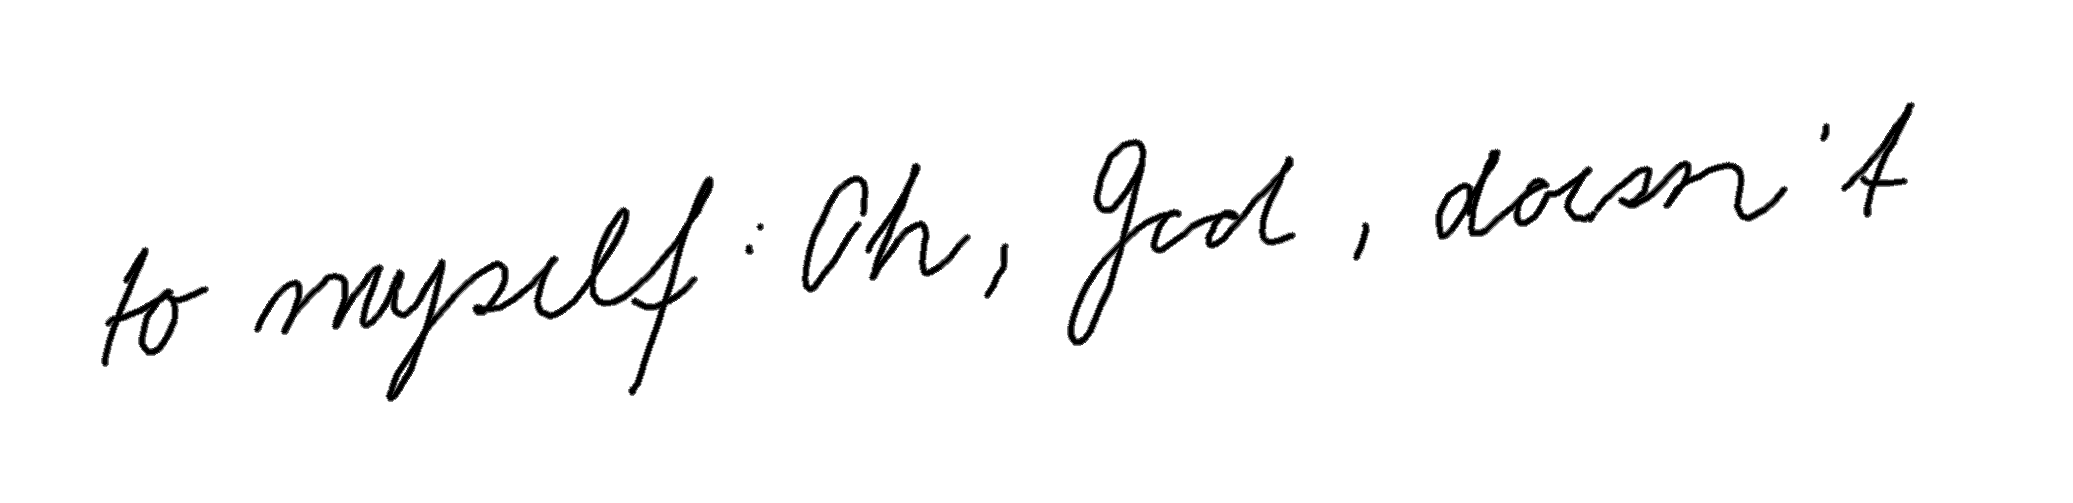 to myself : Oh, God, doesn't